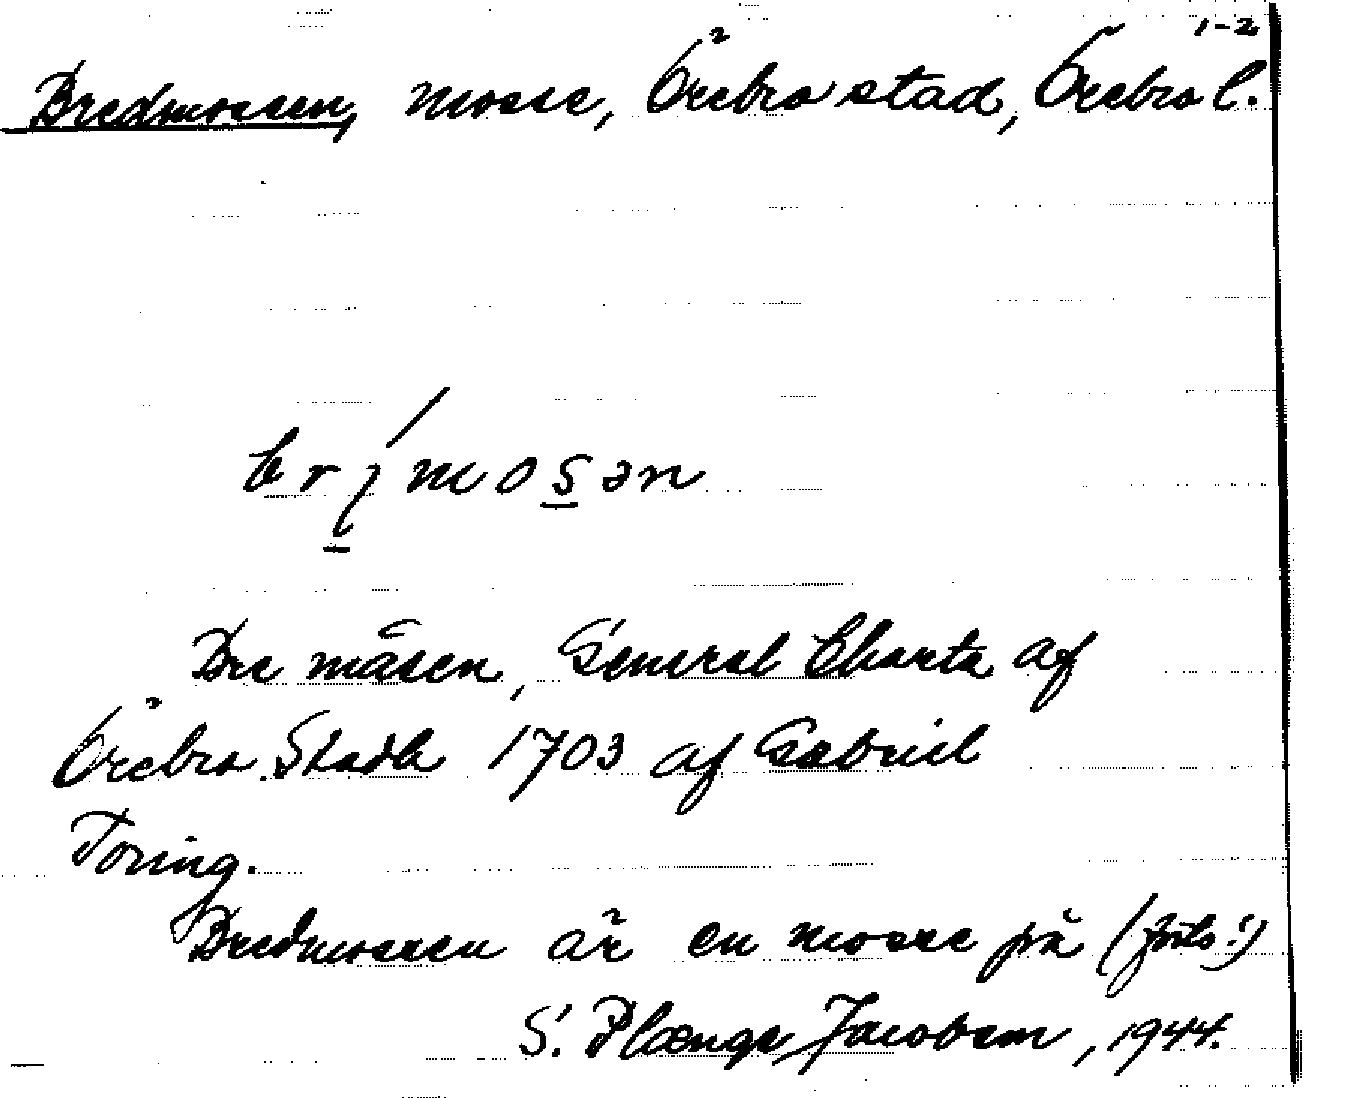 1-2
Bredmossen, mosse, Örebro stad, Örebro l.
Bre måsen, General Charta af
Örebro Stadh 1703 af Gabriel
Toring.
Bredmossen är en mosse på (forts.!)
S. Plænge Jacobson, 1944.